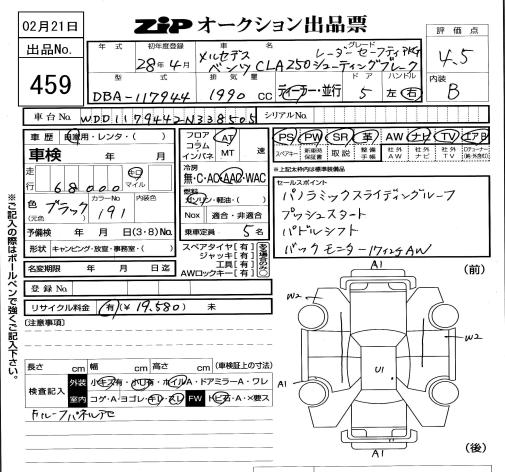 02月21日
出品No.
459
ZIP オークション出品票
年式
初年度登録
28年4月
車名
メルセデスベンツ CLA250 シューティングブレーク
グレード
レーダーセーフティPKG
型式
DBA-117944
排気量
1990 cc
ディーラー・並行
ドア
5
ハンドル
左 右
評価点
4.5
内装
B
車台No.
WDD1179442N338505
シリアルNo.
車歴 自家用・レンタ・( )
車検 年 月
走行 68000 キロ マイル
色 ブラック
(元色)
カラーNo
191
内装色
予備検 年 月 日(3・8)No.
形状 キャンピング・放宣・事務室・( )
名変期限 年 月 日迄
登録No.
リサイクル料金 有(¥ 19.580) 未
フロア
コラム
インパネ
AT
MT
速
冷房
無・C・AC・AAC・WAC
燃料
ガソリン・軽油・( )
Nox 適合・非適合
乗車定員 5 名
スペアタイヤ[有]
ジャッキ[有]
工具[有]
AWロックキー[有]
PS PW SR 革 AW ナビ TV エアB
スペアキー
新車時保証書
取説
整備手帳
社外AW
社外ナビ
社外TV
※上記太枠内は標準装備品
セールスポイント
パノラミックスライディングルーフ
プッシュスタート
パドルシフト
バックモニター 17インチAW
(注意事項)
長さ cm 幅 cm 高さ cm (車検証上の寸法)
検査記入
外装 小キズ有・小U有・ホイルA・ドアミラーA・ワレ
室内 コゲ・A・ヨゴレ・キレ・スレ FW トビ石・A・×要ス
※ご記入の際はボールペンで強くご記入下さい。
(前)
A1
W2
W2
U1
A1
A1
(後)